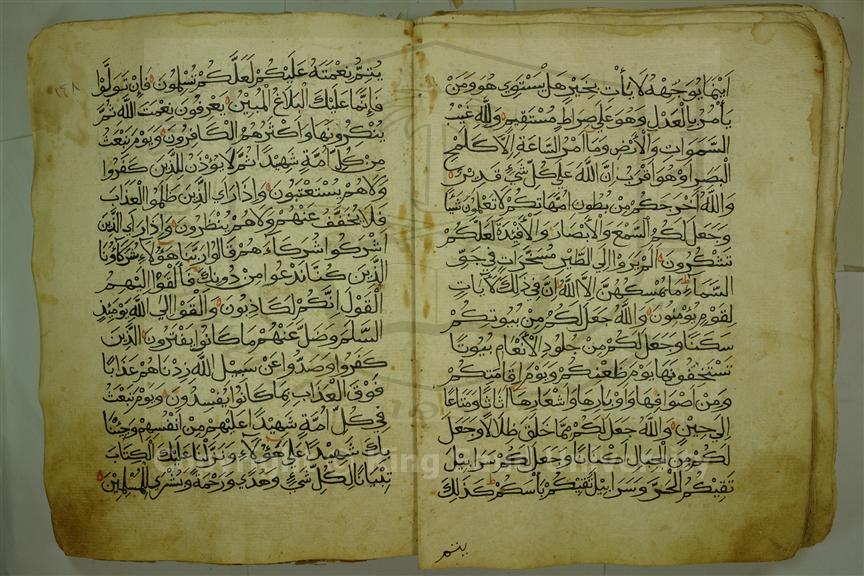 اينما يوجهه لا يأت بخير هل يستوي هو ومن
يأمر بالعدل وهو على صراط مستقيم والله غيب
السموات والارض وما امر الساعة الا كلمح
البصر او هو اقرب ان الله على كل شيء قدير
والله اخرجكم من بطون امهاتكم لا تعلمون شيئا
وجعل لكم السمع والابصار والافئدة لعلكم
تشكرون الم يروا الى الطير مسخرات في جو
السماء ما يمسكهن الا الله ان في ذلك لآيات
لقوم يؤمنون والله جعل لكم من بيوتكم
سكنا وجعل لكم من جلود الانعام بيوتا
تستخفونها يوم ظعنكم ويوم اقامتكم
ومن اصوافها واوبارها واشعارها اثاثا ومتاعا
الى حين والله جعل لكم مما خلق ظلالا وجعل
لكم من الجبال اكنانا وجعل لكم سرابيل
تقيكم الحر وسرابيل تقيكم بأسكم كذلك
يتم
١٤٨
يتم نعمته عليكم لعلكم تسلمون فإن تولوا
فإنما عليك البلاغ المبين يعرفون نعمت الله ثم
ينكرونها واكثرهم الكافرون ويوم نبعث
من كل امة شهيدا ثم لا يؤذن للذين كفروا
ولا هم يستعتبون واذا رأى الذين ظلموا العذاب
فلا يخفف عنهم ولا هم ينظرون واذا رأى الذين
اشركوا شركاءهم قالوا ربنا هؤلاء شركاؤنا
الذين كنا ندعوا من دونك فألقوا اليهم
القول انكم لكاذبون والقوا الى الله يومئذ
السلم وضل عنهم ما كانوا يفترون الذين
كفروا وصدوا عن سبيل الله زدناهم عذابا
فوق العذاب بما كانوا يفسدون ويوم نبعث
في كل امة شهيدا عليهم من انفسهم وجئنا
بك شهيدا على هؤلاء ونزلنا عليك الكتاب
تبيانا لكل شيء وهدى ورحمة وبشرى للمسلمين